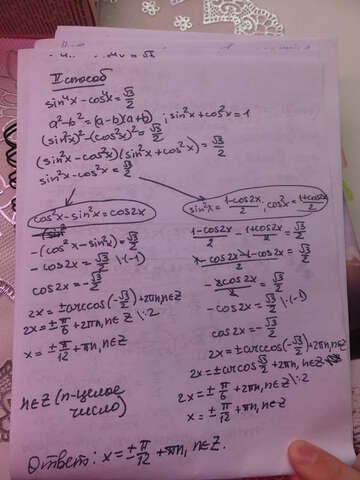 II способ
sin⁴x - cos⁴x = √3/2
a² - b² = (a-b)(a+b) ; sin²x + cos²x = 1
(sin²x)² - (cos²x)² = √3/2
(sin²x - cos²x)(sin²x + cos²x) = √3/2
sin²x - cos²x = √3/2
cos²x - sin²x = cos2x
-(cos²x - sin²x) = √3/2
-cos2x = √3/2 |·(-1)
cos2x = -√3/2
2x = ±arccos(-√3/2) + 2πn, n∈Z
2x = ±π/6 + 2πn, n∈Z |:2
x = ±π/12 + πn, n∈Z
n∈Z (n - целое
число)
sin²x = (1-cos2x)/2 ; cos²x = (1+cos2x)/2
(1-cos2x)/2 - (1+cos2x)/2 = √3/2
(1-cos2x-1-cos2x)/2 = √3/2
-2cos2x/2 = √3/2
-cos2x = √3/2 |·(-1)
cos2x = -√3/2
2x = ±arccos(-√3/2) + 2πn, n∈Z
2x = ±arccos √3/2 + 2πn, n∈Z
2x = ±π/6 + 2πn, n∈Z |:2
x = ±π/12 + πn, n∈Z
Ответ: x = ±π/12 + πn, n∈Z.